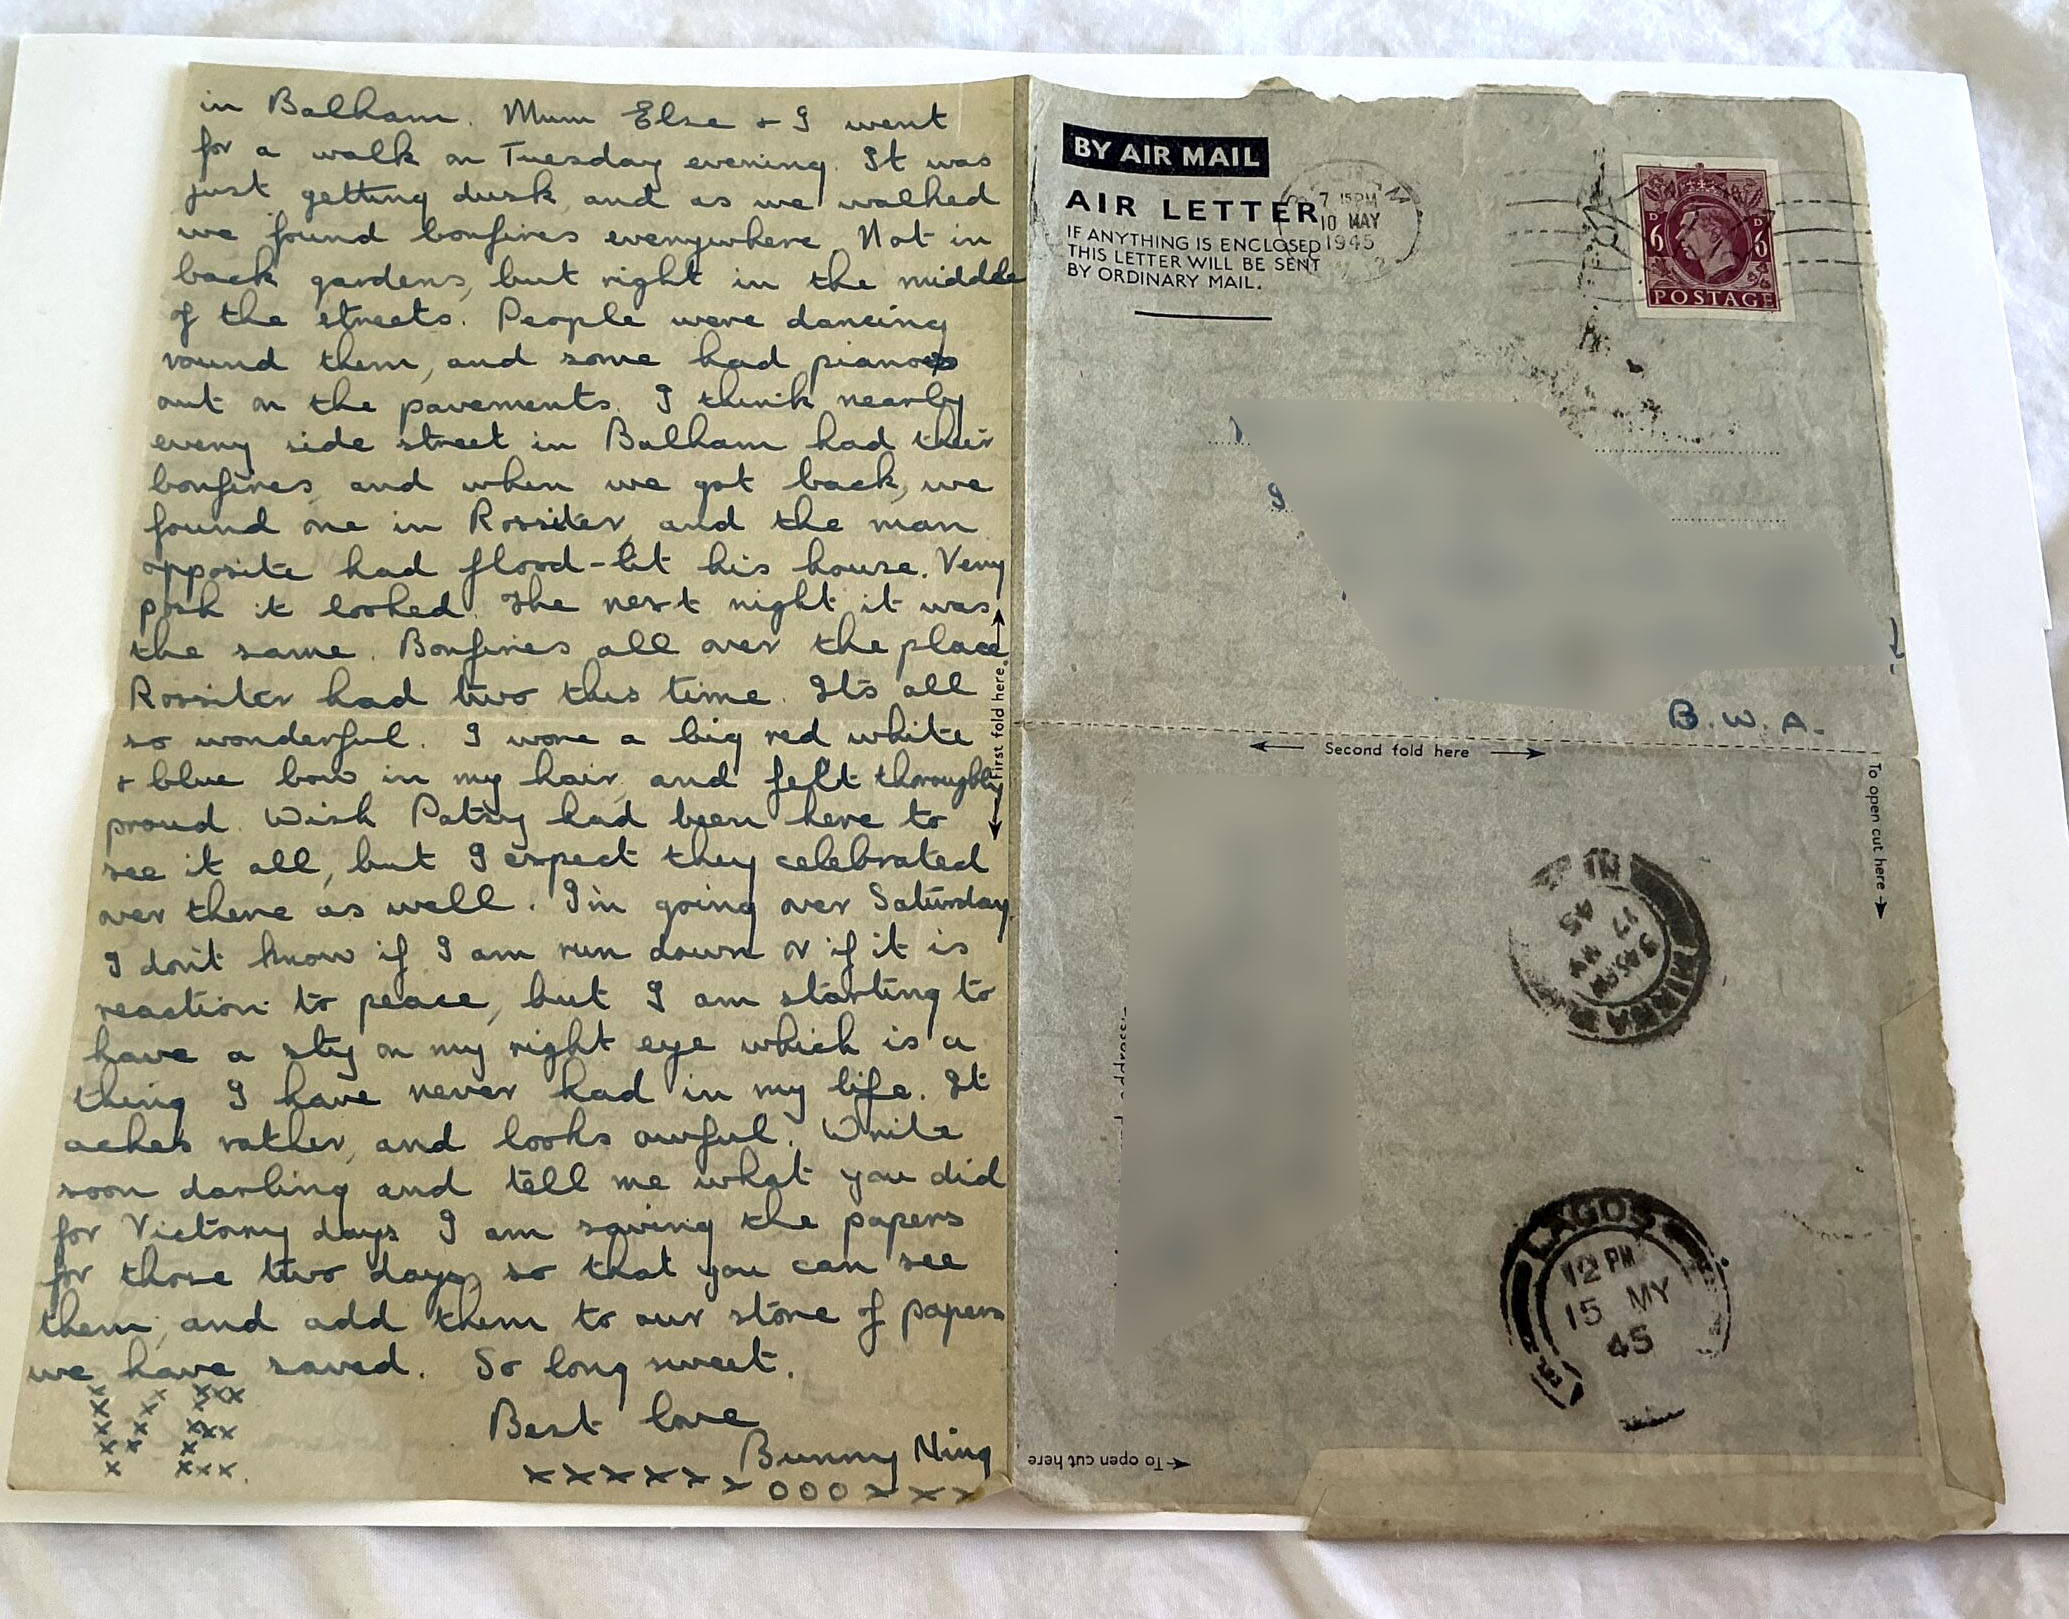 in Balham. Mum Else + I went
for a walk on Tuesday evening. It was
just getting dusk, and as we walked
we found bonfires everywhere. Not in
back gardens, but right in the middle
of the streets. People were dancing
round them, and some had pianos
out on the pavements. I think nearly
every side street in Balham had their
bonfires, and when we got back, we
found one in Rossiter, and the man
opposite had flood-lit his house. Very
posh it looked. The next night it was
the same. Bonfires all over the place
Rossiter had two this time. It's all
so wonderful. I wore a big red white
+ blue bow in my hair, and felt thoroughly
proud. Wish Patsy had been here to
see it all, but I expect they celebrated
over there as well. I'm going over Saturday.
I don't know if I am run down or if it is
reaction to peace, but I am starting to
have a sty on my right eye which is a
thing I have never had in my life. It
aches rather, and looks awful. Write
soon darling and tell me what you did
for Victory days. I am saving the papers
for those two days, so that you can see
them, and add them to our store of papers
we have saved. So long sweet.
Best love
Bunny Ning
xxxxxx OOO xxx
First fold here
BY AIR MAIL
AIR LETTER
IF ANYTHING IS ENCLOSED
THIS LETTER WILL BE SENT
BY ORDINARY MAIL.
7 15PM
10 MAY
1945
6D 6D
POSTAGE
B.W.A.
Second fold here
To open cut here
45
17
LAGOS
12 PM
15 MY
45
To open cut here